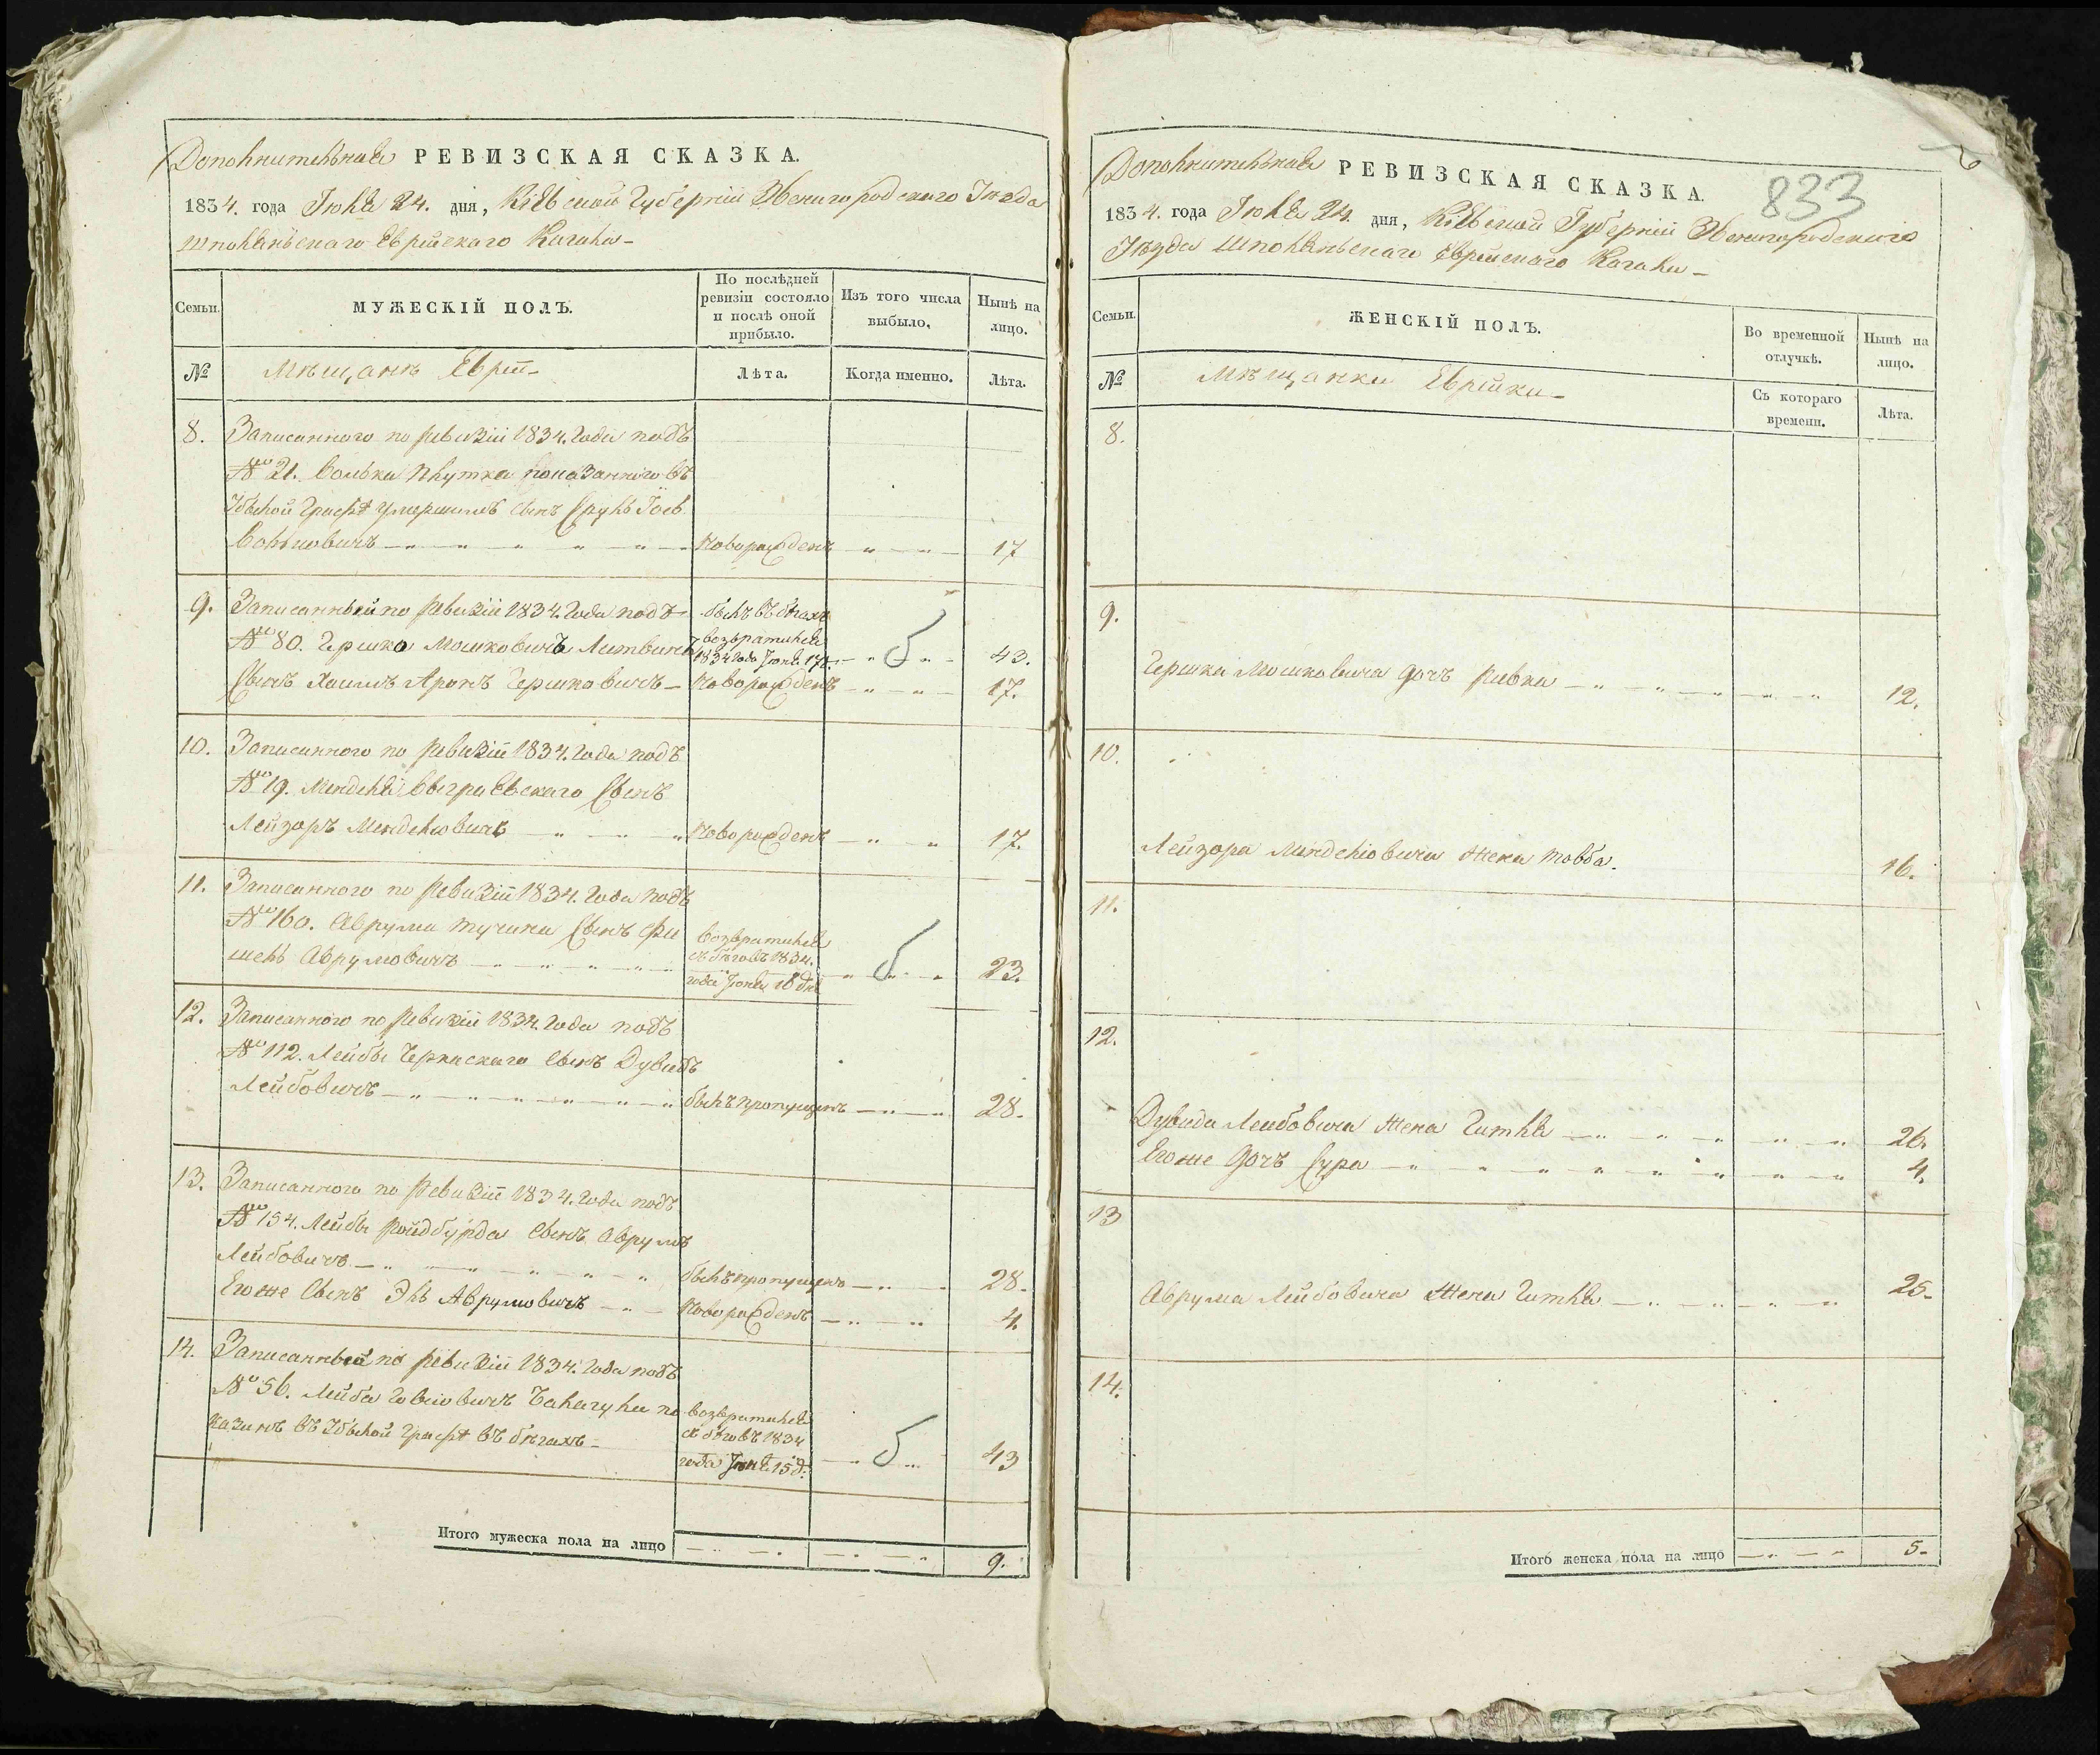 Дополнительная РЕВИЗСКАЯ СКАЗКА.
1834. года Июля 24. дня, Кіевской Губерніи Звенигородского Уѣзда
Шполянскаго Еврейскаго Кагала
Семьи.
МУЖЕСКІЙ ПОЛЪ.
По послѣдней ревизіи состояло и послѣ оной прибыло.
Изъ того числа выбыло,
Нынѣ на лицо.
№
Мѣщанъ Еврей
Лѣта.
Когда именно.
Лѣта.
8. Записанного по ревизіи 1834. года подъ
№ 21. Волька показанного въ
Сынъ Сруль
Вольковичъ новорожденъ 17
9. Записанный по ревизіи 1834. Года подъ былъ въ бѣгахъ
№ 80. Гершко Мошковичъ Литвинъ возвратился 1834 года 43.
Сынъ Хаимъ Аронъ Гершковичъ новорожденъ 17.
10. Записанного по ревизіи 1834. года подъ
№ 19. Менделя Сынъ
Лейзоръ Менделювичъ новорожденъ 17.
11. Записанного по ревизіи 1834. года подъ
№ 160. Аврума Тучина Сынъ Фи
шель Аврумовичъ возвратился съ бѣговъ 1834. года 18 дня 23.
12. Записанного по ревизіи 1834. года подъ
№ 112. Лейбы Черкаскаго Сынъ Дувидъ
Лейбовичъ былъ пропущенъ 28.
13. Записанного по ревизіи 1834. года подъ
№ 154. Лейбы Сынъ Аврумъ
Лейбовичъ былъ пропущенъ 28.
Егоже Сынъ Эль Аврумовичъ новорожденъ 4.
14. Записанный по ревизіи 1834. года подъ
№ 56. Лейба по возвратился
казанъ въ бѣгахъ съ бѣговъ 1834
года 15 д. 43
Итого мужеска пола на лицо 9.
Дополнительная РЕВИЗСКАЯ СКАЗКА.
833
1834. года Июля 24. дня, Кіевской Губерніи Звенигородскаго
Уѣзда Шполянскаго Еврейскаго Кагала
Семьи.
ЖЕНСКІЙ ПОЛЪ.
Во временной отлучкѣ.
Нынѣ на лицо.
№
Мѣщанки Еврейки
Съ котораго времени.
Лѣта.
8.
9.
Гершка Мошковича дочь Ривка 12.
10.
Лейзора Менделювича Жена Товба. 16.
11.
12.
Дувида Лейбовича Жена Гитля 26.
Егоже дочь Сура 4.
13
Аврума Лейбовича Жена Гитля 25.
14.
Итого женска пола на лицо 5.